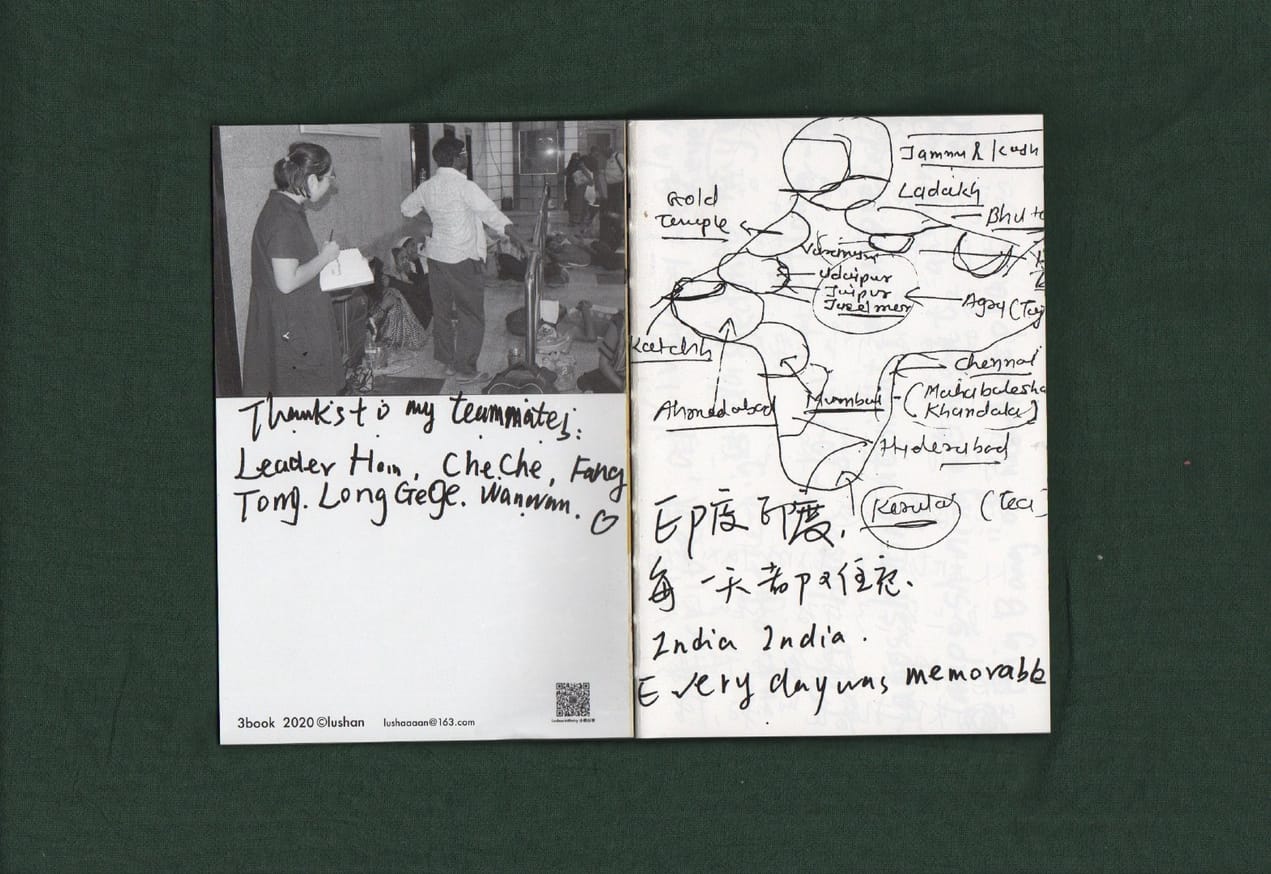 Thanks to my teammates:
Leader Hom, CheChe, Fang
Tong. Long GeGe. Wanwan.
3book 2020 ©lushan lushaaaan@163.com
Jammu & Kash
Ladakh
Gold
Temple
Bhut
Varanasi
Udaipur
Jaipur
Jaselmer
Agra (Taj
Katchh
Chennai
Ahmedabad
Mumbai - (Mahabalesha
Khandala)
Hyderabad
Kerula (Tea)
印度印度,
每一天都难忘.
India India.
Every day was memorable